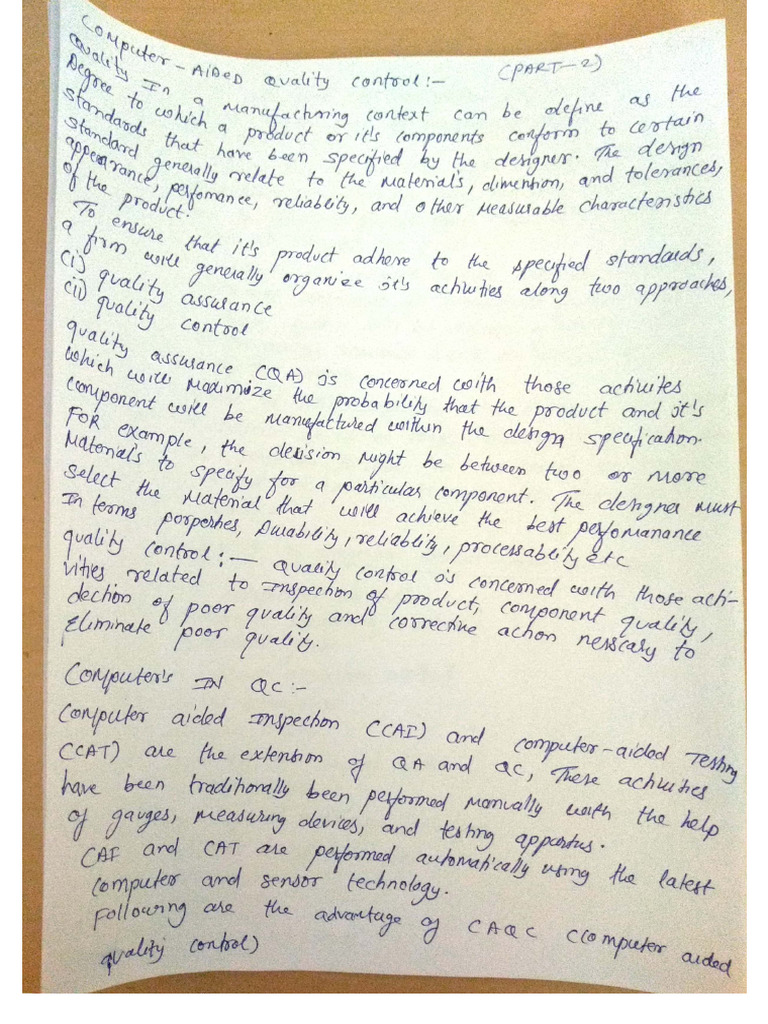 Computer-AIDED Quality control:- (PART-2)
Quality In a manufacturing context can be define as the
Degree to which a product or it's components conform to certain
standards that have been specified by the designer. The design
standard generally relate to the material's, dimention, and tolerances,
appearance, perfomance, reliablity, and other measurable characteristics
of the product.
To ensure that it's product adhere to the specified standards,
a firm will generally organize it's activities along two approaches,
(i) quality assurance
(ii) quality control
quality assurance (QA) is concerned with those activites
which will maximize the probability that the product and it's
component will be manufactured within the design specification.
FOR example, the decision might be between two or more
Material's to specify for a particular component. The designer must
select the material that will achieve the best perfomanance
In terms porperties, Durability, reliablity, processablity etc
quality control:- Quality control is concerned with those acti-
vities related to Inspection of product, component quality,
dection of poor quality and corrective action nesscary to
Eliminate poor quality.
Computer's IN QC:-
Computer aided Inspection (CAI) and computer-aided Testing
(CAT) are the extension of QA and QC, These activities
have been traditionally been performed manually with the help
of gauges, measuring devices, and testing appartus.
CAI and CAT are performed automatically using the latest
computer and sensor technology.
Following are the advantage of CAQC (Computer aided
quality control)